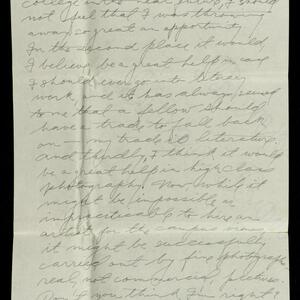 college in the near future, I should
not feel that I was throwing
away so great an opportunity.
In the second place it would,
I believe, be a great help in case
I should ever go into
work, and it has always seemed
to me that a fellow should
have a trade to fall back
on — my trade is literature.
And thirdly, I think it would
be a great help in high class
photography. Now while it
might be impossible or
impracticable to hire an
artist for the campus
it might be successfully
carried out by fine photographs,
real, not commercial pictures.
Don't you think I'm right?